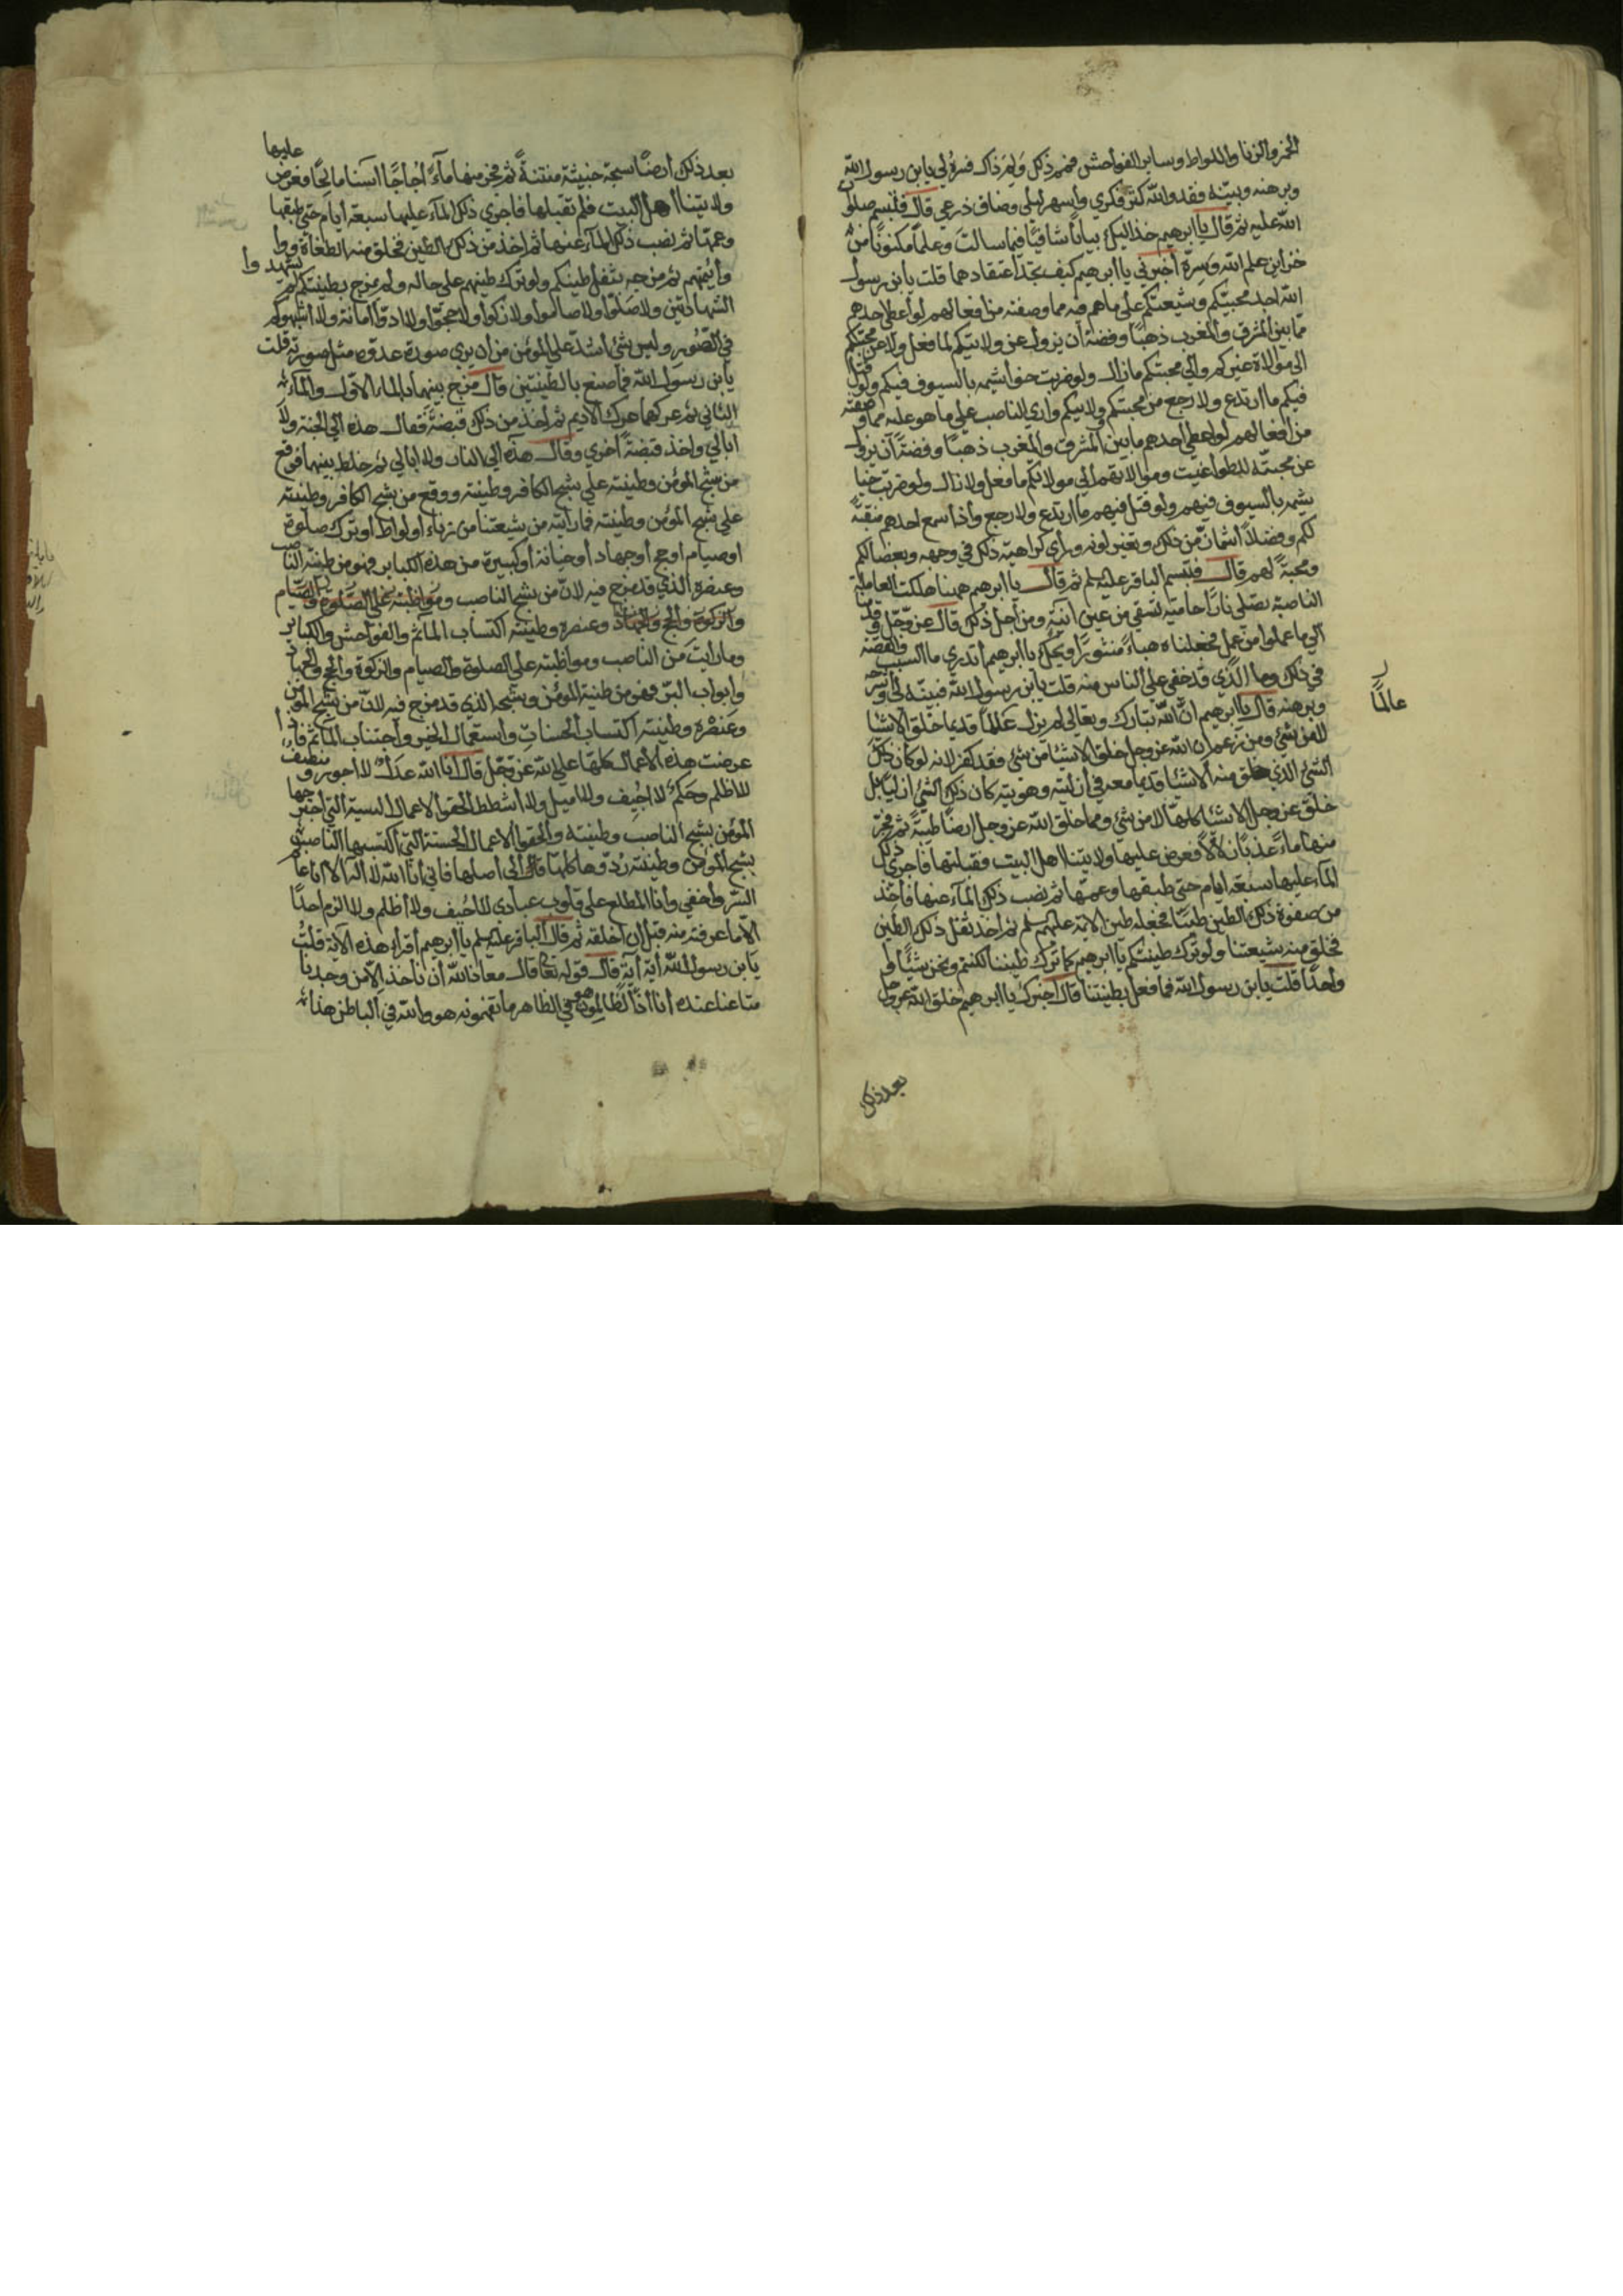 الخمر والزنا واللواط وساير الفواحش فمم ذلك ولم ذاك فسره لي يابن رسول الله
وبرهنه وبينه فقد والله كثر فكري وأسهر ليلي وضاق ذرعي قال فتبسم صلوات
الله عليه ثم قال يا ابرهيم خذ اليك بيانا شافيا فيما سالت وعلما مكنونا من
خزاين علم الله وسره أخبرني يا ابرهيم كيف تجد اعتقادهما قلت يابن رسول
الله اجد محبيكم وشيعتكم على ما هم فيه مما وصفته من افعالهم لو أعطي احدهم
مما بين المشرق والمغرب ذهبا وفضة أن يزول عن ولايتكم لما فعل ولا عن محبتكم
الى موالاة غيركم والى محبتكم ما زال ولو ضربت خياشيمه بالسيوف فيكم ولو قتل
فيكم ما ارتدع ولا رجع من محبتكم ولايتكم واري الناصب علي ما هو عليه مما وصفته
من افعالهم لو اعطي أحدهم ما بين المشرق والمغرب ذهبا وفضة أن يزول
عن محبته للطواغيت وموالاتهم الي موالاتكم ما فعل ولا زال ولو ضربت خيا
شيمه بالسيوف فيهم ولو قتل فيهم ما ارتدع ولا رجع واذا سمع احدهم منقبة
لكم وفضلا اشمأز من ذلك وتغير لونه ورأي كراهية ذلك في وجهه وبغضا لكم
ومحبة لهم قال فتبسم الباقر عليه لم ثم قال يا ابرهيم ههنا هلكت العاملة
الناصبة تصلى نارا حامية تسقي من عين انية ومن أجل ذلك قال عز وجل وقدمنا
الي ما عملوا من عمل فجعلناه هباء منثورا ويحك يا ابرهيم أتدري ما السبب والقصة
في ذلك وما الذي قد خفي على الناس منه قلت يابن رسول الله فبينه لي واشرحه
وبرهنه قال يا ابرهيم ان الله تبارك وتعالي لم يزل عالما قديما خلق الاشيا
لا من شئ ومن زعم ان الله عز وجل خلق الاشيا من شئ فقد كفر لانه لو كان ذلك
الشئ الذي خلق منه الاشيا قديما معه في أزليته وهويته كان ذلك الشئ ازليا بل
خلق عز وجل الاشيا كلها لا من شئ ومما خلق الله عز وجل ارضا طيبة ثم فجر
منها ماء عذبا زلالا فعرض عليها ولايتنا اهل البيت فقبلتها فاجري ذلك
المآء عليها سبعة ايام حتى طبقها وعمها ثم نضب ذلك المآء عنها فأخذ
من صفوة ذلك الطين طينا فجعله طين الائمة عليهم لم ثم اخذ ثفل ذلك الطين
فخلق منه شيعتنا ولو ترك طينتكم يا ابرهيم كما ترك طينتنا لكنتم ونحن شيئا
واحدا قلت يابن رسول الله فما فعل بطينتنا قال اخبرك يا ابرهيم خلق الله عز وجل
عالما
بعد ذلك
بعد ذلك أرضا سبخة خبيثة منتنة ثم فجر منها ماء أجاجا اسنا مالحا فعرض عليها
ولايتنا أهل البيت فلم تقبلها فاجري ذلك المآء عليها سبعة أيام حتي طبقها
وعمها ثم نضب ذلك المآء عنها ثم اخذ من ذلك الطين فخلق منه الطغاة
وأئمتهم ثم مزجه بثفل طينتكم ولو ترك طينتهم على حاله ولم يمزج بطينتكم لم يشهدوا
الشهادتين ولا صلوا ولا صاموا ولا زكوا ولا حجوا ولا ادوا أمانة ولا اشبهوكم
في الصور وليس شئ أشد على المؤمن من أن يري صورة عدوه مثل صورته قلت
يابن رسول الله فما صنع بالطينتين قال مزج بينهما بالماء الاول والمآء
الثاني ثم عركها عرك الاديم ثم أخذ من ذلك قبضة فقال هذه الي الجنة ولا
ابالي واخذ قبضة أخري وقال هذه الي النار ولا ابالي ثم خلط بينهما فوقع
من سنخ المؤمن وطينته علي سنخ الكافر وطينته ووقع من سنخ الكافر وطينته
علي سنخ المؤمن وطينته فما رأيته من شيعتنا من زناء او لواط او ترك صلوة
او صيام او حج او جهاد أو خيانة أو كبيرة من هذه الكباير فهو من طينة الناصب
وعنصره الذي قد مزج فيه لان من سنخ الناصب
وعنصره وطينته اكتساب المآثم والفواحش والكباير
وما رأيت من الناصب ومواظبته على الصلوة والصيام والزكوة والحج والجهاد
وابواب البر فهو من طينة المؤمن وسنخه الذي قد مزج فيه لان من سنخ المؤمن
وعنصره وطينته اكتساب الحسنات واستعمال الخير واجتناب المآثم فاذا
عرضت هذه الأعمال كلها علي الله عز وجل قال أنا الله عدل لا اجور ومنصف
لا اظلم وحكم لا احيف ولا اميل ولا أشطط الحقوا الاعمال السيئة التي اجترحها
المؤمن بسنخ الناصب وطينته والحقوا الاعمال الحسنة التي اكتسبها الناصب
بسنخ المؤمن وطينته ردوها كلها الى أصلها فاني أنا الله لا اله الا انا عالم
السر وأخفي وأنا المطلع على قلوب عبادي لا احيف ولا أظلم ولا الزم احدا
الا ما عرفته منه قبل ان اخلقه ثم قال الباقر عليه لم يا ابرهيم أقرأ هذه الآية قلت
يابن رسول الله أية آية قال قوله تعا قال معاذ الله أن نأخذ الا من وجدنا
متاعنا عنده أنا اذا لظالمون هو في الظاهر ما تفهمونه هو والله في الباطن هذا